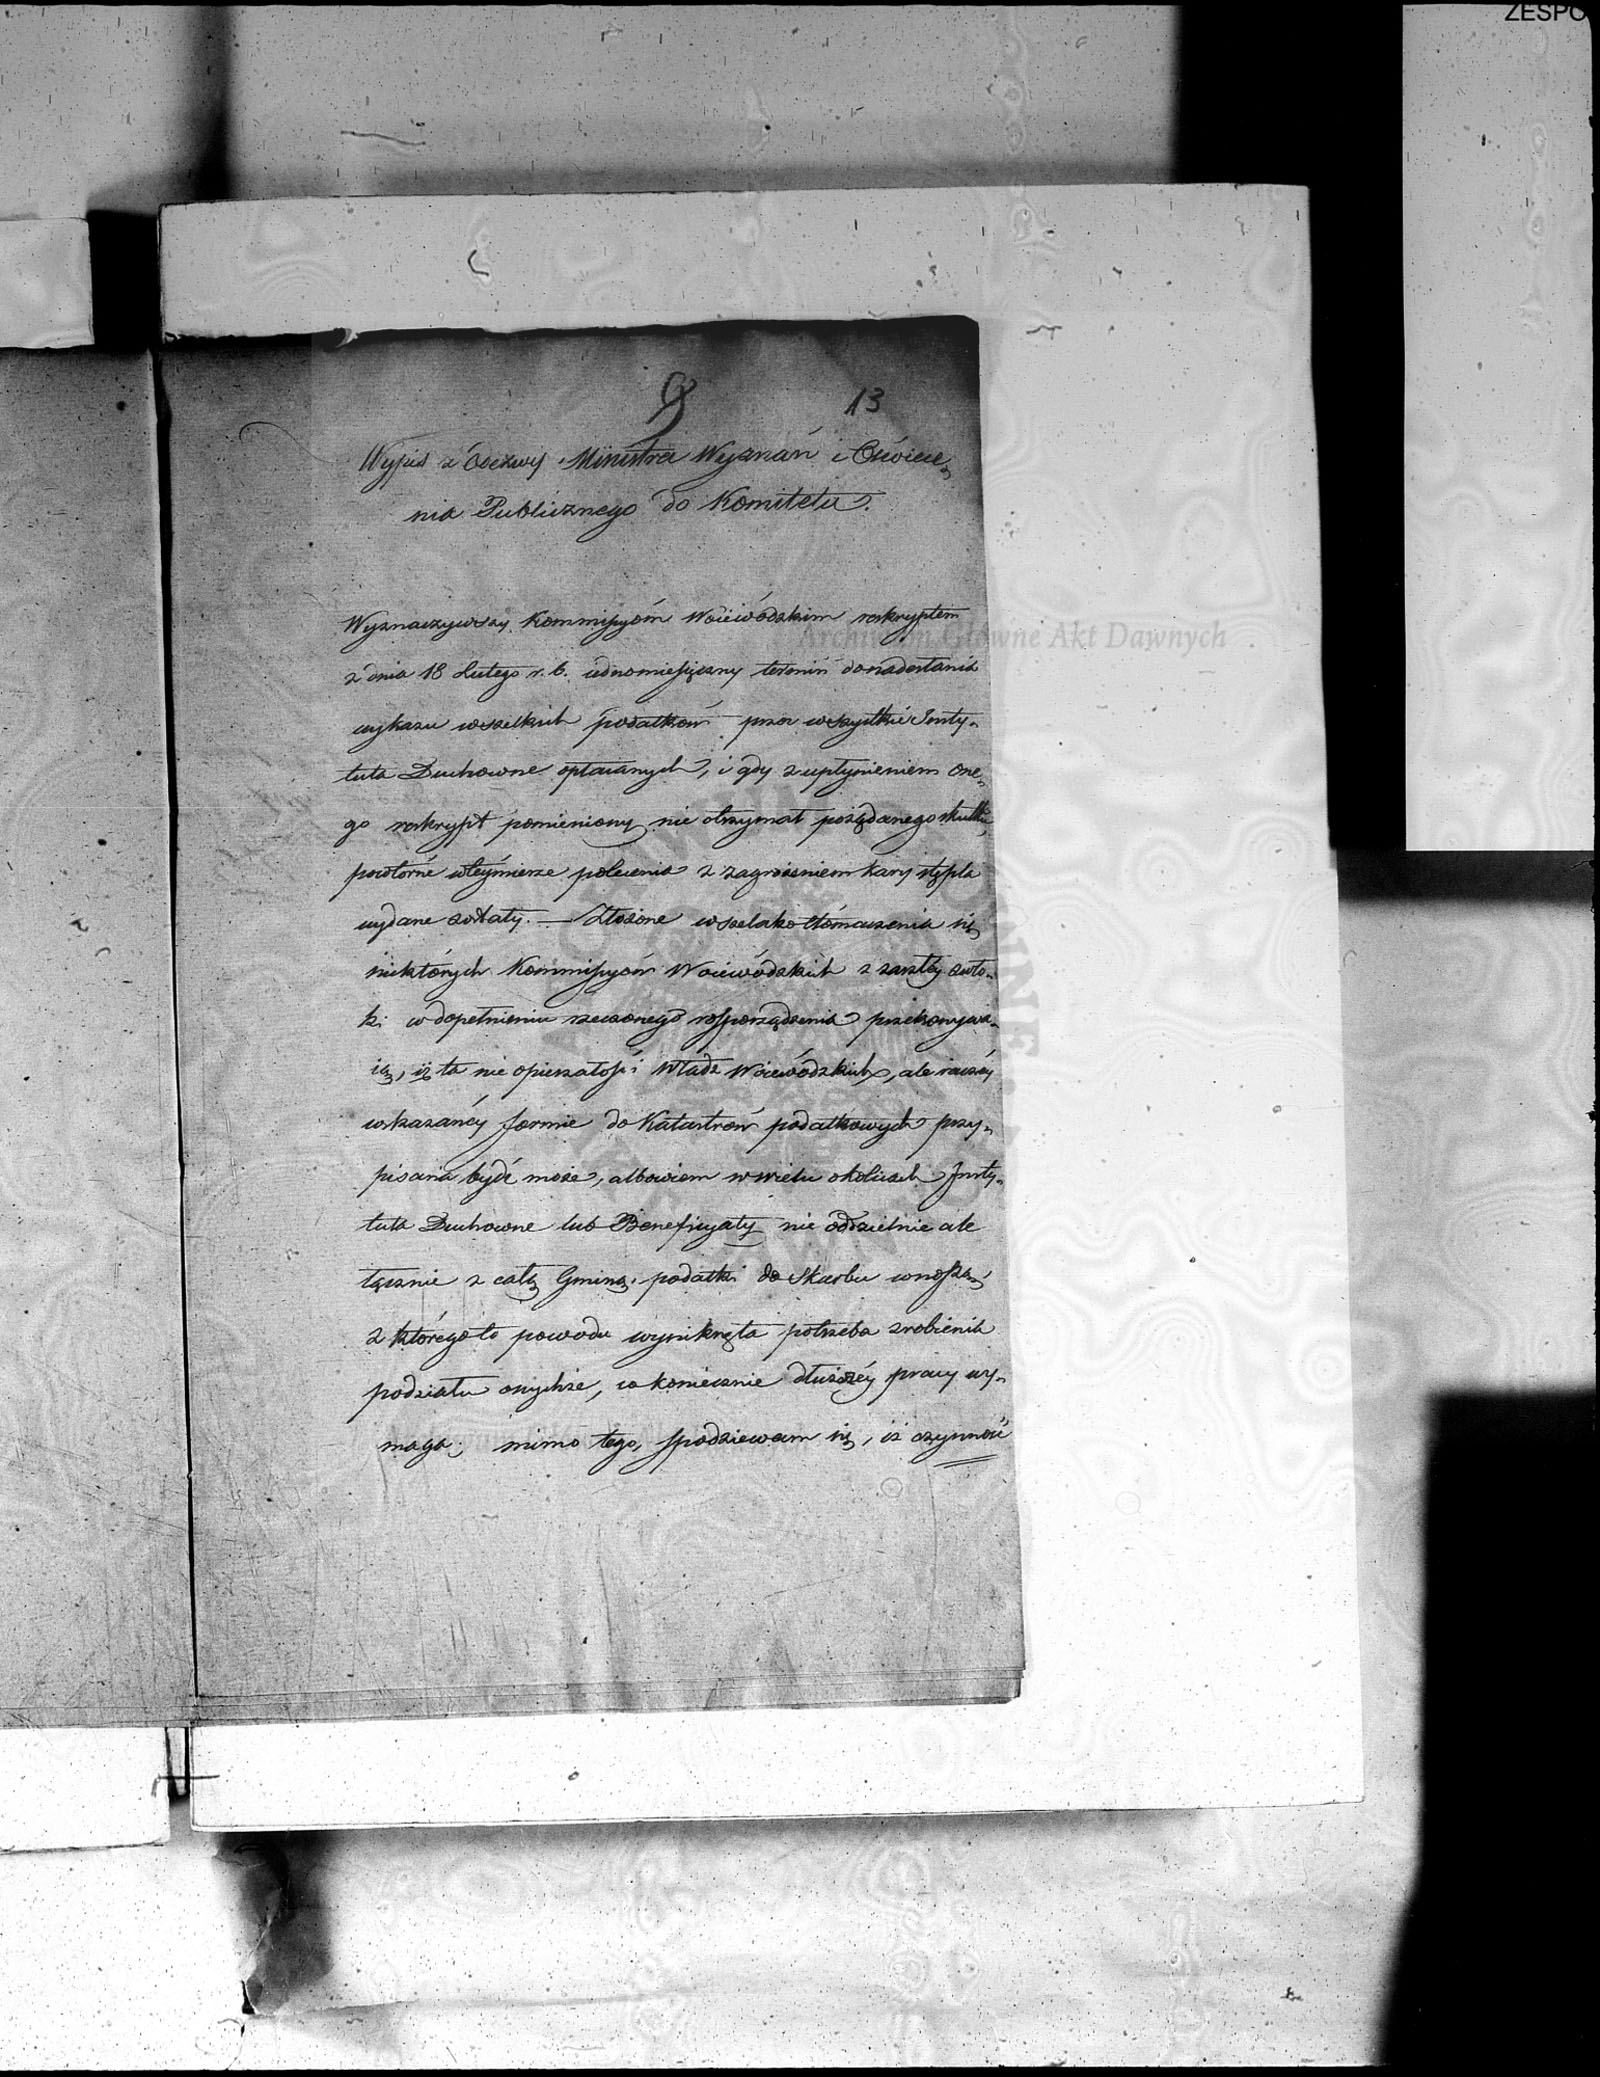 ZESPO
9 13
Wypis z Odezwy Ministra Wyznań i Oświece-
nia Publicznego do Komitetu.
Wyznaczywszy Kommissyóm Woiewódzkim reskryptem
z dnia 18 Lutego r. b. iednomiesięczny termin do nadesłania
wykazu wszelkich podatków przez wszystkie Insty-
tuta Duchowne opłacanych, i gdy z upłynieniem one-
go reskrypt pomieniony nie otrzymał pożądanego skutku,
powtórne w teymierze polecenia z zagrożeniem kary stępla
wydane zostały. — Złożone wszelako tłómaczenia się
niektórych Kommissyów Woiewódzkich z zaszłey zwło-
ki w dopełnieniu rzeczonego rosporządzenia przekonywa-
ią, iż ta nie opieszałości Władz Woiewódzkich, ale raczéy
wskazanéy formie do Katastrów podatkowych przy-
pisana bydź może, albowiem w wielu okolicach Insty-
tuta Duchowne lub Beneficyaty nie oddzielnie ale
łącznie z całą Gminą podatki do Skarbu wnoszą,
z którego to powodu wyniknęła potrzeba zrobienia
podziału onychże, co koniecznie dłuższéy pracy wy-
maga; mimo tego, spodziewam się, iż czynność
Archiwum Główne Akt Dawnych